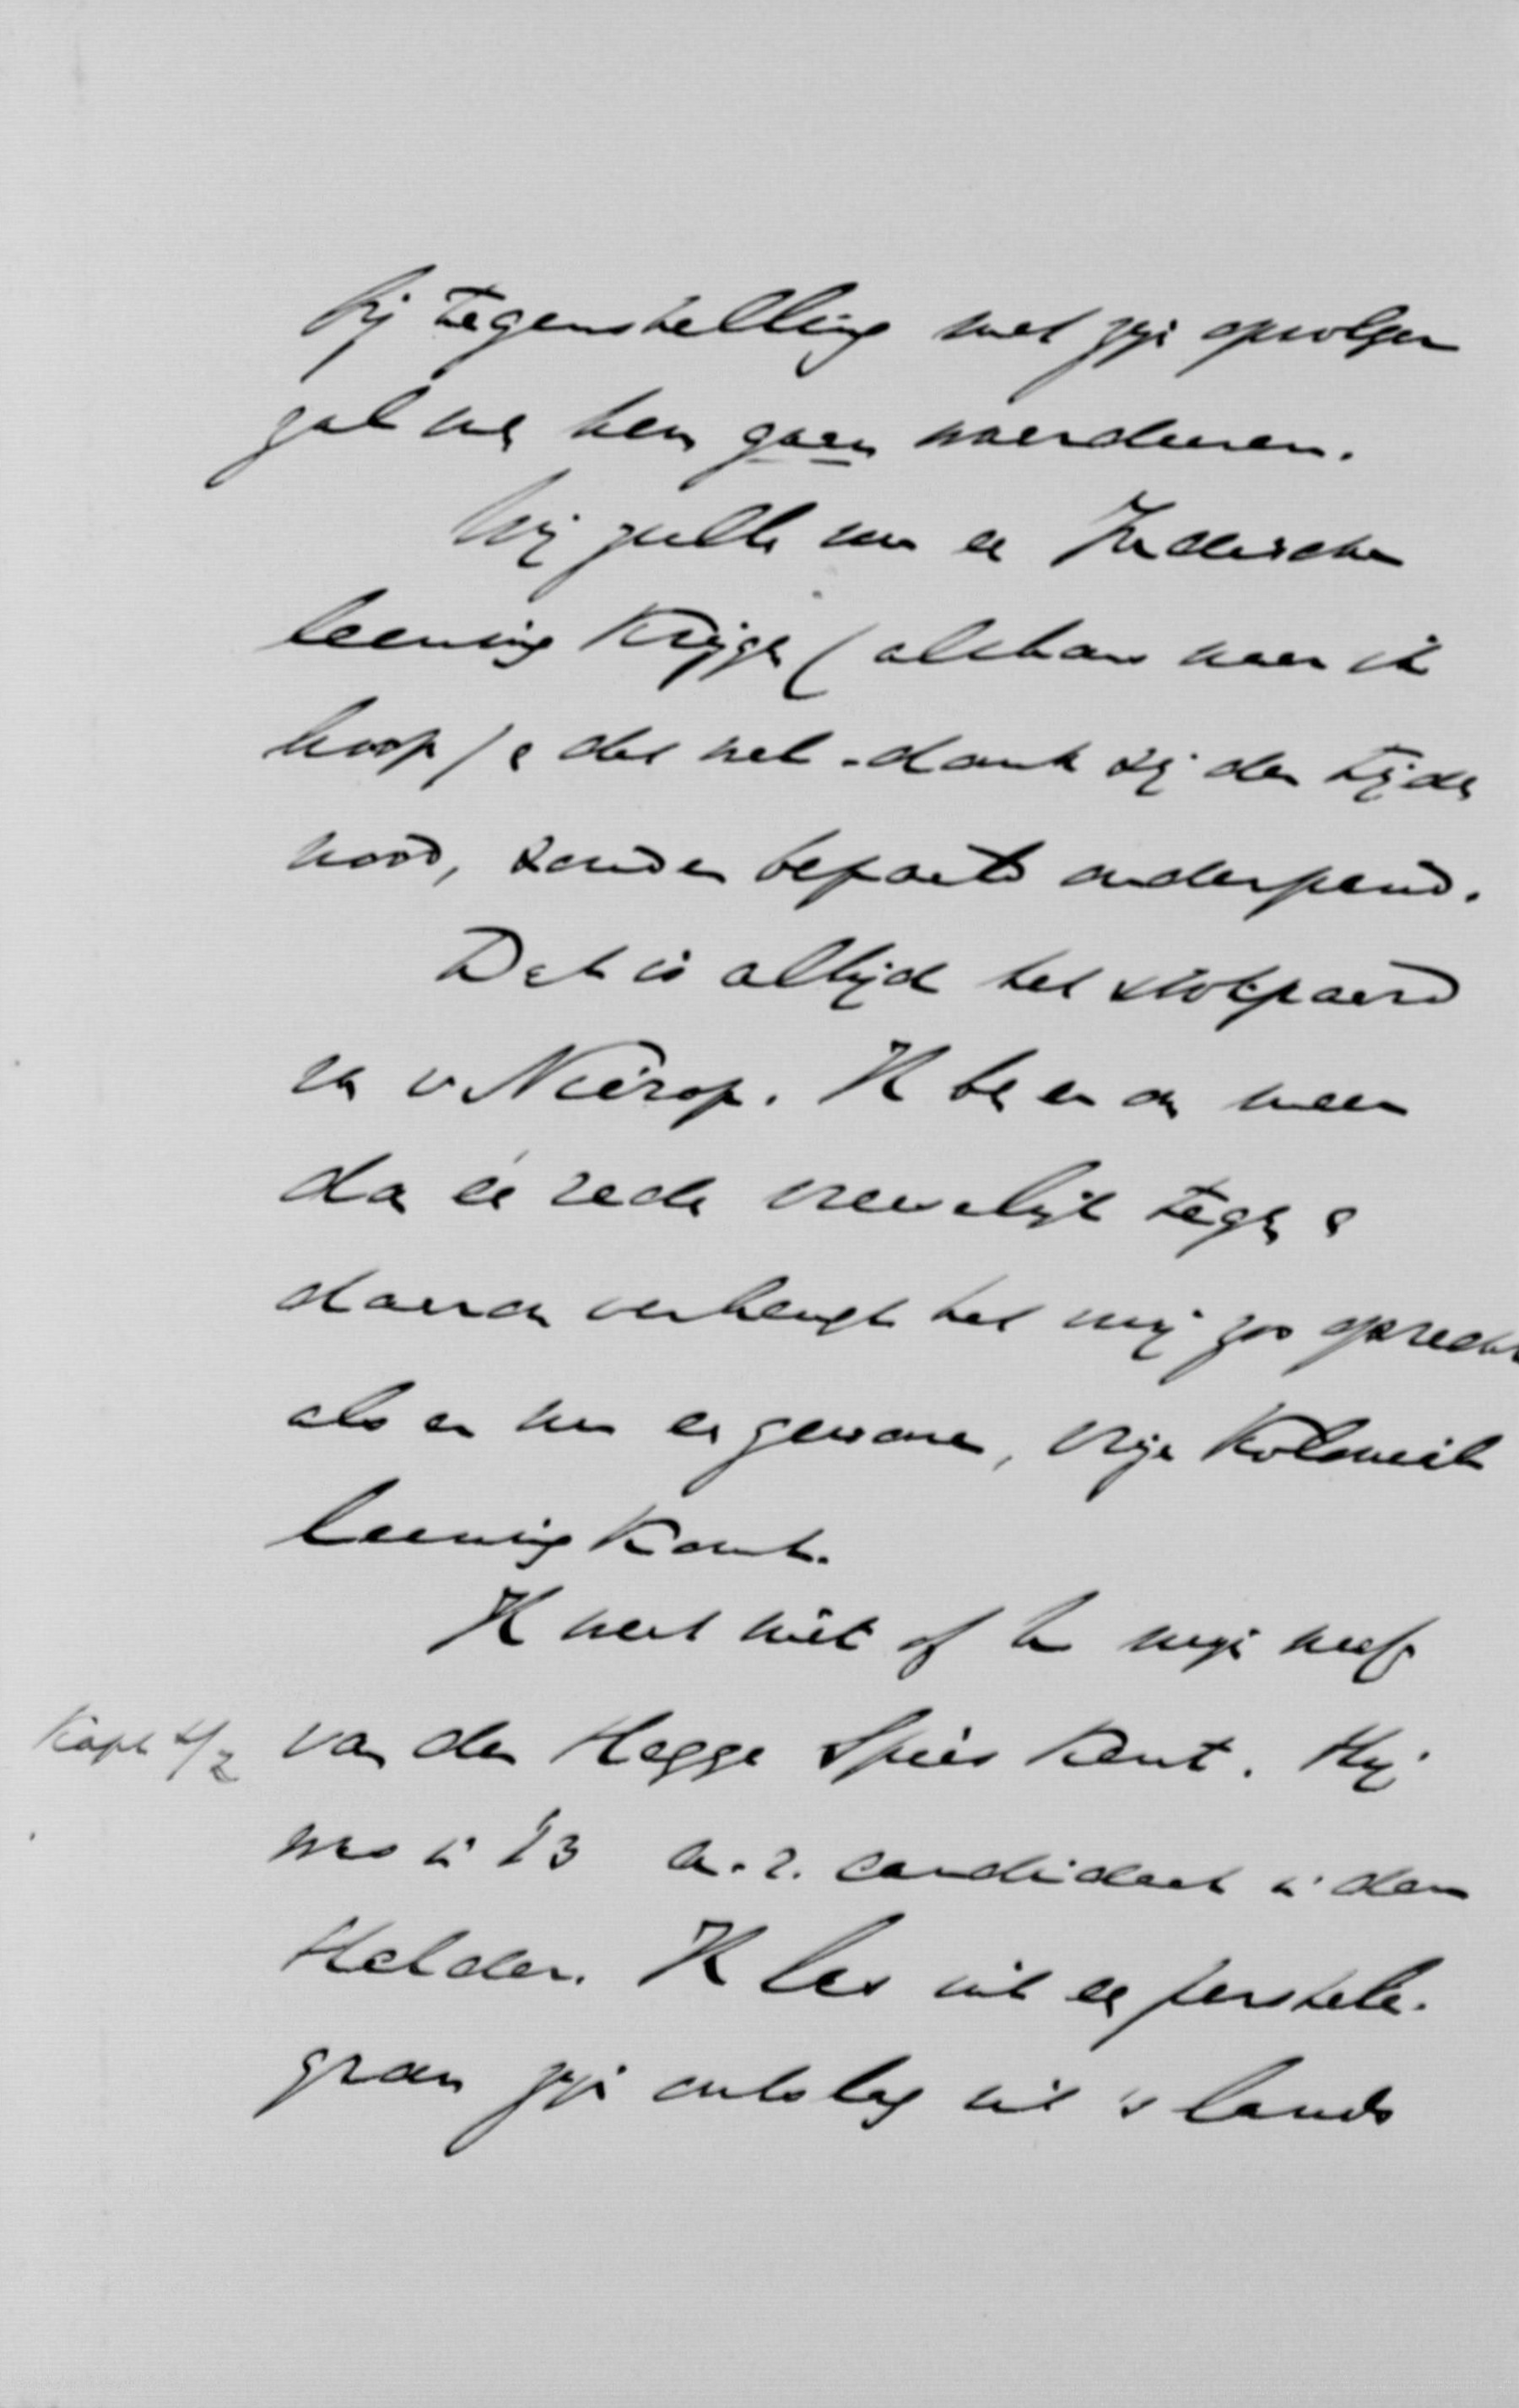 Bij tegenstelling met zijn opvolger
zal men hem gaan waardeeren.
Wij zullen nu een Indische
leening krijgen (althans naar ik
hoop) en dat wel - dank zij den tijds
nood, zonder bepaald onderpand.
Dat is altijd het stokpaard
van v Nierop. Ik ben er om meer
dan één reden vreeselijk tegen en
daarom verheugt het mij zoo oprecht
als er nu een gewone, vrije Koloniale
leening komt.
Ik weet niet of U mijn neef
Kapt t/z van der Hegge Spies kent. Hij
was in '13 a.r. candidaat in den
Helder. Ik las uit een perstele-
gram zijn ontslag uit 's lands